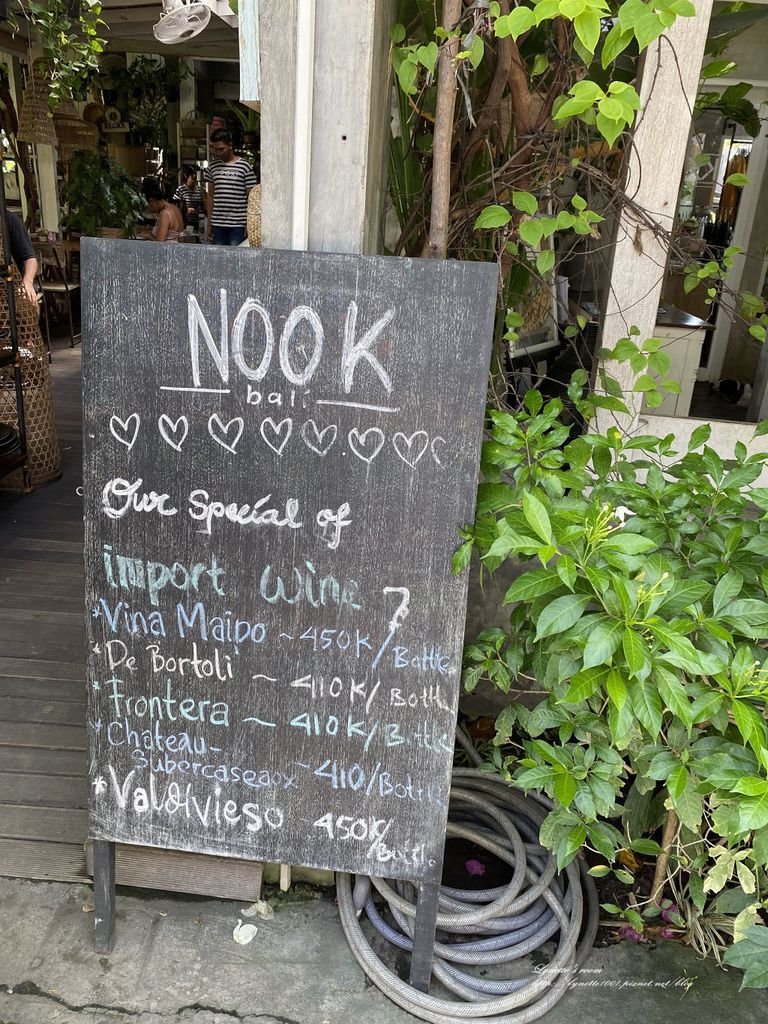 NOOK
bali
Our Special of
import wine
*Vina Maipo ~ 450K/Bottle
*De Bortoli ~ 410K/Bottle
*Frontera ~ 410K/Bottle
*Chateau-
Subercaseaux ~410/Bottle
*Valdivieso 450K/
Bottl.
Lynette's room
http://lynette1001.pixnet.net/blog